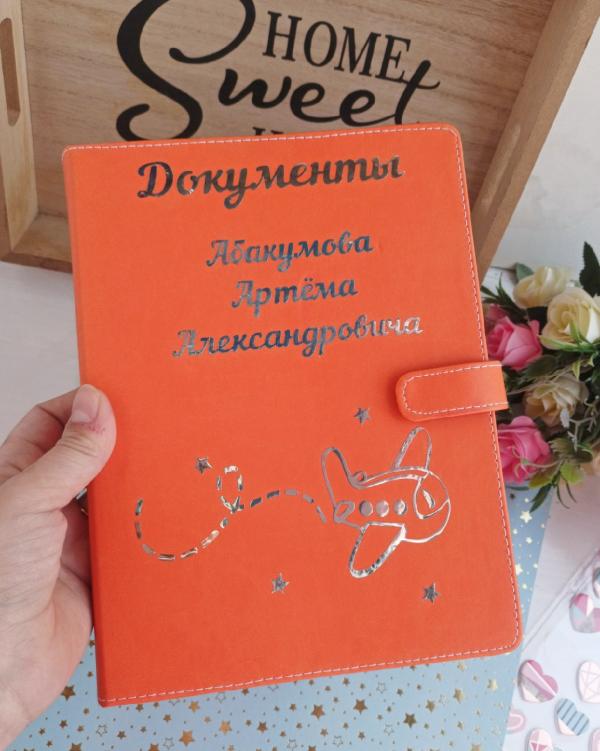 HOME
Sweet
Документы
Абакумова
Артёма
Александровича